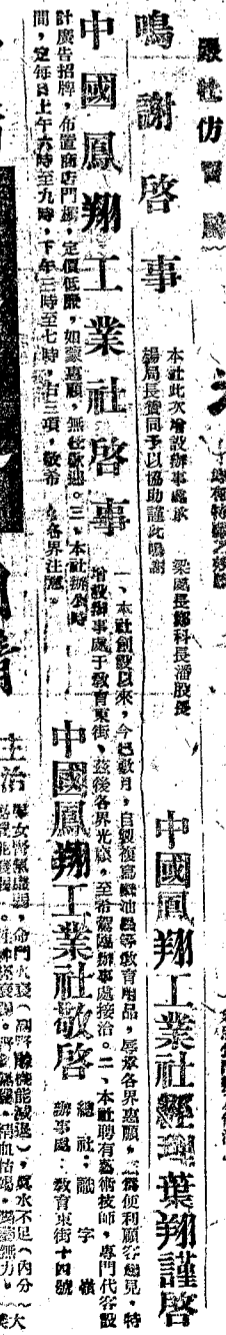 鳴謝啓事
本社此次增設辦事處承　梁處長鄭科長潘股長
楊局長贊同予以協助謹此鳴謝
中國鳳翔工業社經理葉翔謹啓
中國鳳翔工業社啓事
一、本社創設以來，今已數月，自製複寫油墨等敎育用品，辱承各界惠顧，爲便利顧客起見，特
增設辦事處于敎育東街，茲後各界光顧，至希駕臨辦事處接洽。二、本社聘有藝術技師，專門代客設
計廣告招牌，布置商店門櫥，定價低廉，如蒙惠顧，無任歡迎。三、本社辦公時
間，定每日上午六時至九時，下午三時至七時，右三項，敬希　各界注意。
中國鳳翔工業社敬啓
總社：識字嶺
辦事處：敎育東街十四號
主治